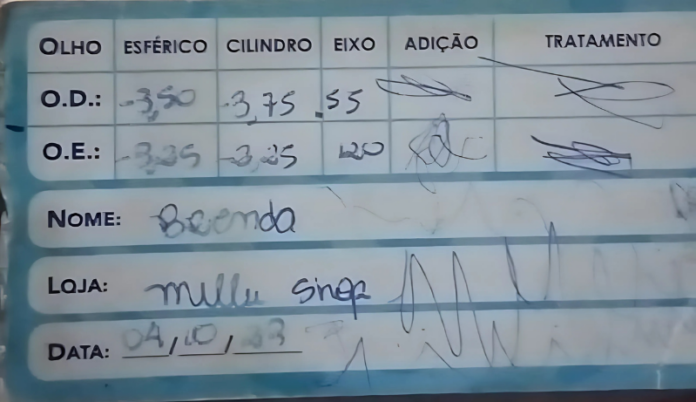 OLHO ESFÉRICO CILINDRO EIXO ADIÇÃO TRATAMENTO
O.D.: -3,50 -3,75 .55
O.E.: -3,25 -3,25 120
NOME: Brenda
LOJA:
DATA: 04/10/